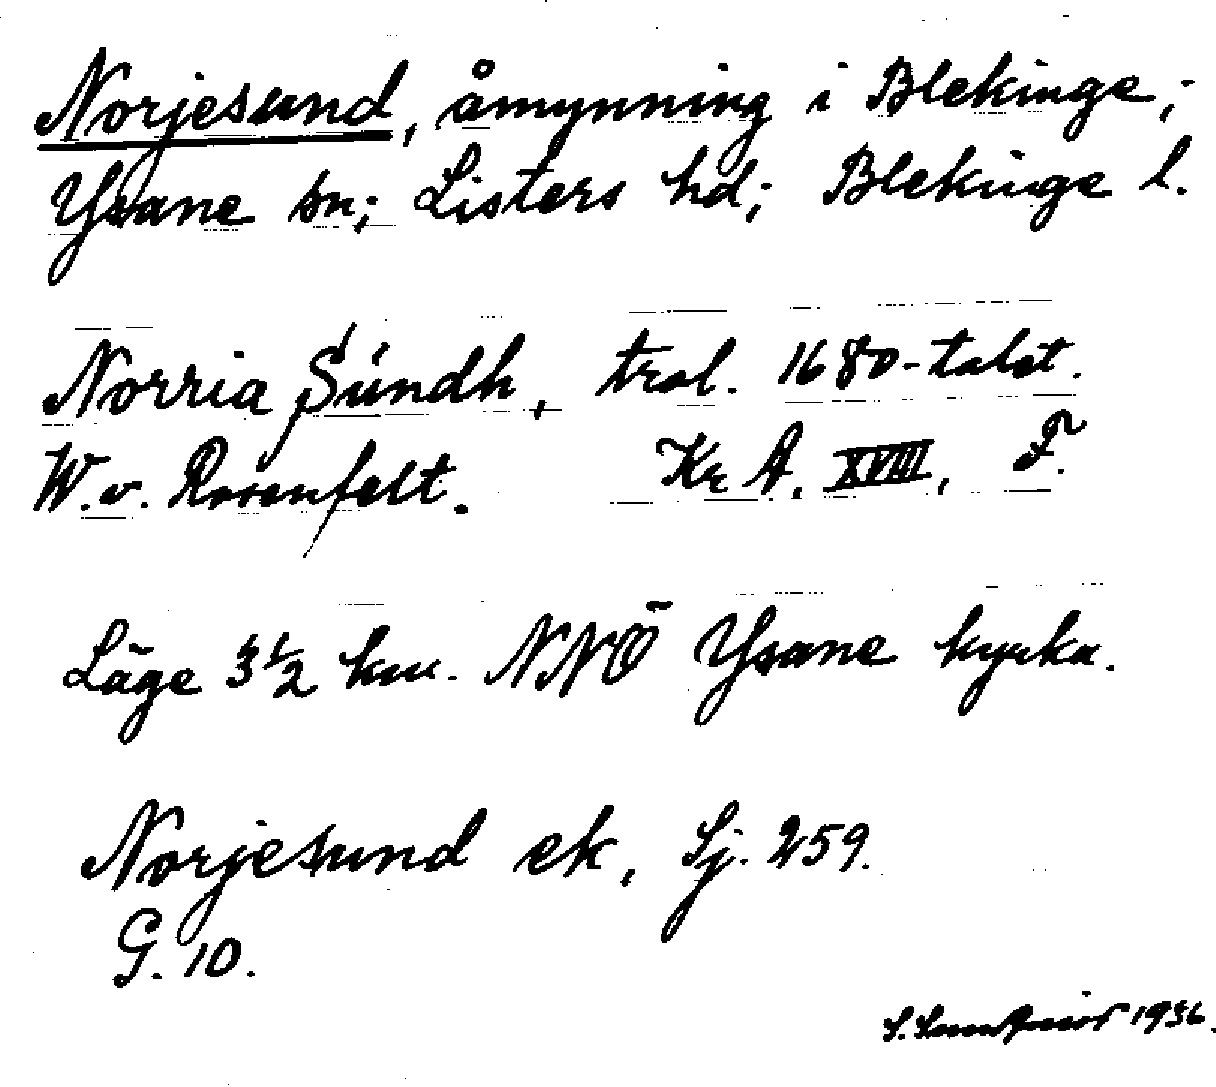 Norjesund, åmynning i Blekinge;
Ysane sn; Listers hd; Blekinge l.
Norria Súndh, trol. 1680-talet.
W. v. Rosenfelt. Kr A. XVIII, F.
Läge 3 1/2 km. NNÖ Ysane kyrka.
Norjesund ek, Sj. 259.
G. 10.
S. 1936.